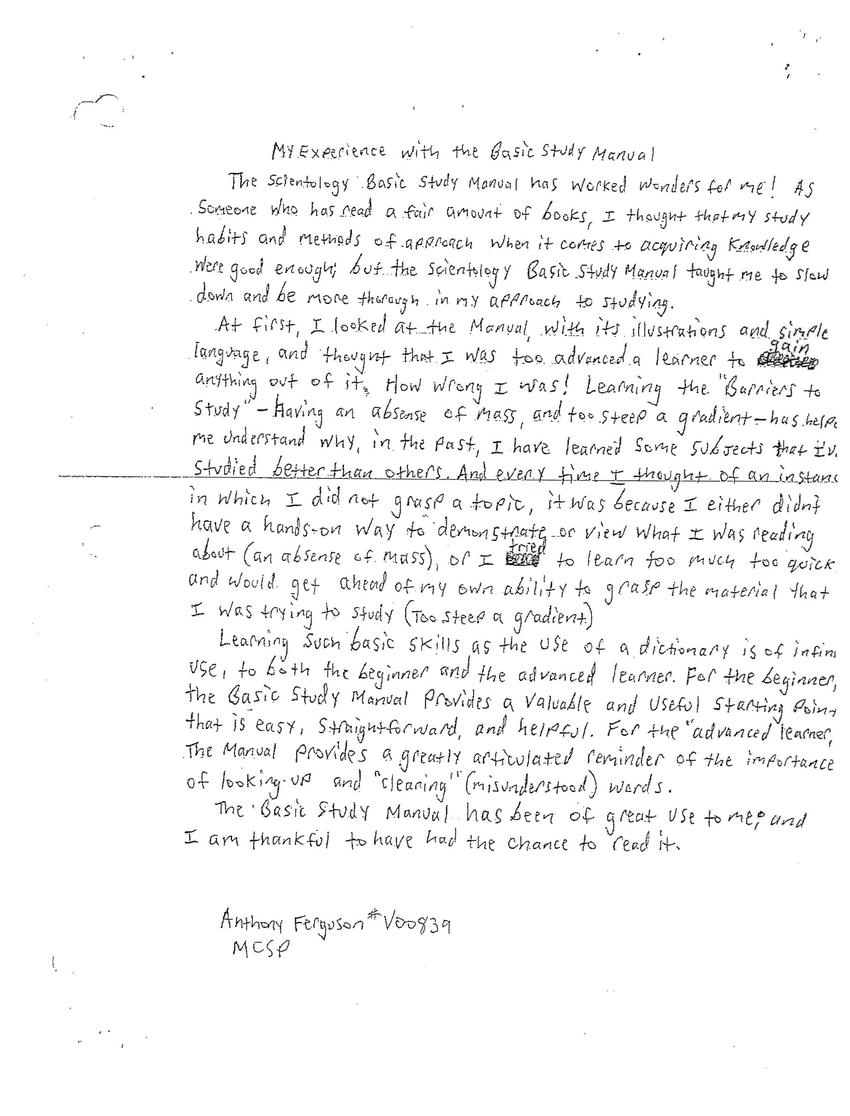 My Experience with the Basic Study Manual
The Scientology Basic Study Manual has worked wonders for me! As
someone who has read a fair amount of books, I thought that my study
habits and methods of approach when it comes to acquiring knowledge
were good enough; but the Scientology Basic Study Manual taught me to slow
down and be more thorough in my approach to studying.
At first, I looked at the Manual, with its illustrations and simple
language, and thought that I was too advanced a learner to gain
anything out of it. How wrong I was! Learning the "Barriers to
Study" - Having an absense of mass, and too steep a gradient - has helpe
me understand why, in the past, I have learned some subjects that Iv
studied better than others. And every time I thought of an instanc
in which I did not grasp a topic, it was because I either didn't
have a hands-on way to demonstrate or view what I was reading
about (an absense of mass), or I tried to learn too much too quick
and would get ahead of my own ability to grasp the material that
I was trying to study (Too steep a gradient)
Learning such basic skills as the use of a dictionary is of infin
use, to both the beginner and the advanced learner. For the beginner,
the Basic Study Manual provides a valuable and useful starting poin
that is easy, straightforward, and helpful. For the "advanced" learner,
The Manual provides a greatly articulated reminder of the importance
of looking-up and "clearing" (misunderstood) words.
The Basic Study Manual has been of great use to me; and
I am thankful to have had the chance to read it.
Anthony Ferguson #V00839
MCSP